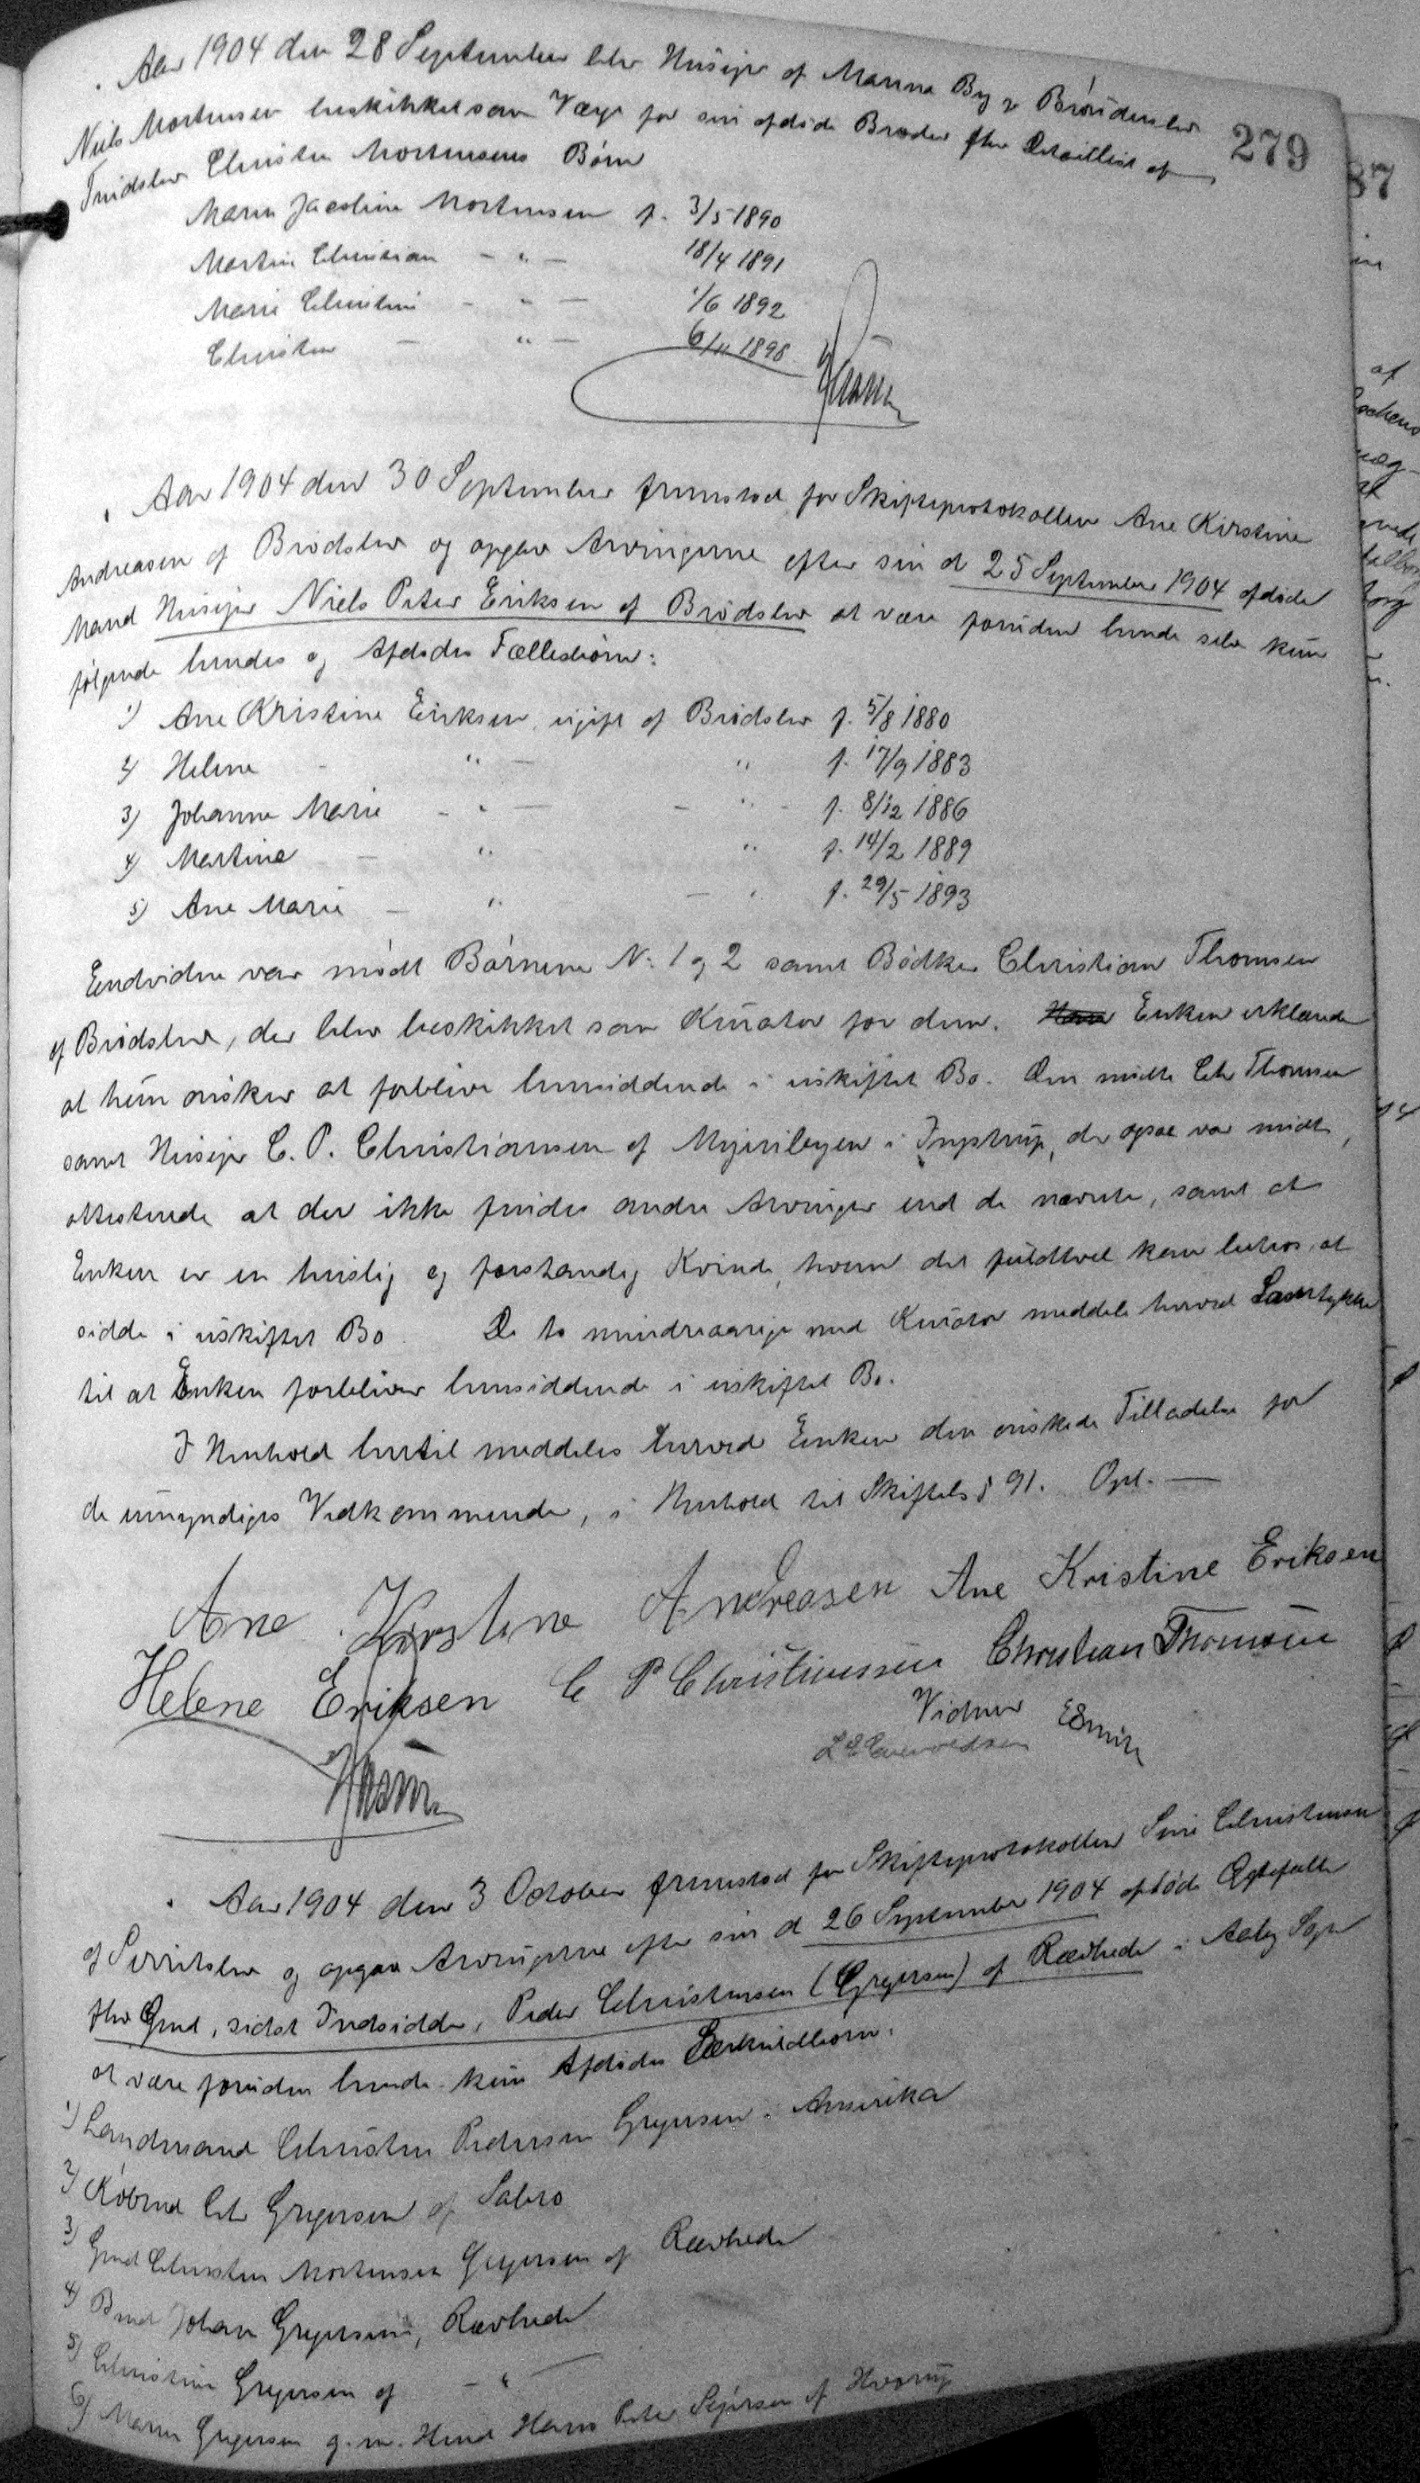 Aar 1904 den 28 September blev Husejer af Manna By Brønderslev
Niels Mortensen beskikket som Værge for sin afdøde Broder fhv Detaillist af
279
Christen Mortensens Børn
Maren Jacobine Mortensen f. 3/5 1890
Martin Christian - " - 18/4 1891
Marie Christine - " - 1/6 1892
Christen - " - 6/11 1898
Aar 1904 den 30 September fremstod for Skifteprotokollen Ane Kirstine
Andreasen af Brødslev og opgav Arvingerne efter sin d 25 September 1904 afdøde
Mand Husejer Niels Peter Eriksen af Brødslev at være foruden hende selv kun
følgende hendes og Afdødes Fællesbørn:
1) Ane Kristine Eriksen, ugift af Brødslev f. 5/8 1880
2) Helene - " - " f. 17/9 1883
3) Johanne Marie - " - - " - f. 8/12 1886
4) Martine - " " f. 14/2 1889
5) Ane Marie - " - " f. 29/5 1893
Endvidere var mødt Børnene N: 1 og 2 samt Bødker Christian Thomsen
af Brødslev, der blev beskikket som Kurator for dem. Enken erklærede
at hun ønsker at forblive hensiddende i uskiftet Bo. Den mødte Chr Thomsen
samt Husejer C. P. Christiansen af Mejeribyen i Ingstrup, der ogsaa var mødt,
attesterede at der ikke findes andre Arvinger end de nævnte, samt at
Enken er en huslig og forstandig Kvinde, hvem det fuldtvel kan betros at
sidde i uskiftet Bo. De to mindreaarige med Kurator meddele herved Samtykke
til at Enken forbliver hensiddende i uskiftet Bo.
I Henhold hertil meddeles herved Enken den ønskede Tilladelse for
de umyndiges Vedkommende, i Henhold til Skiftels § 91. Opl. —
Ane Kirstine Andreasen Ane Kristine Eriksen
Helene Eriksen C P Christiansen Christian Thomsen
Vidner
Aar 1904 den 3 October fremstod for Skifteprotokollen Sine Christensen
af Serritslev og opgav Arvingerne efter sin d 26 September 1904 afdøde Ægtefælle
fhv Gmd, sidst Indsidder, Peder Christensen (Gregersen) af Rævhede i Aaby Sogn
at være foruden hende kun Afdødes Særkuldbørn:
1) Landmand Christen Pedersen Gregersen i Amerika
2) Købmd Chr Gregersen af Sabro
3) Gmd Christen Mortensen Gregersen af Rævhede
4) Bmd Johan Gregersen, Rævhede
5) Christine Gregersen af - " -
6) Maren Gregersen g. m. Hmd Hans Peter Sejersen af Hvorup